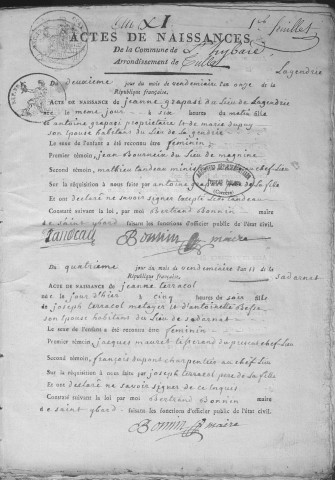 an XI
1er feuillet
ACTES DE NAISSANCES
De la Commune de St ybard
Arrondissement de Tulle
Lagendrie
Du deuxième jour du mois de vendemiaire l'an onze de la
République française.
ACTE DE NAISSANCE de jeanne grapade du Lieu de Lagendrie
née le même jour à six heures du matin fille
de antoine grapade propriétaire et de marie dupuy
son epouse habitant du Lieu de La gendrie
Le sexe de l'enfant a été reconnu être feminin
Premier témoin, jean
Second témoin, mathieu tandeau chef Lieu
Sur la réquisition à nous faite par antoine grapade pere de La fille
Et ont déclaré ne savoir signer excepté Le dit tandeau
Constaté suivant la loi, par moi bertrand bonnin maire
de saint ybard faisant les fonctions d'officier public de l'état civil.
Tandeau Bonnin maire
Du quatrième jour du mois de vendemiaire l'an 11 de la
République française.
sadarnat
ACTE DE NAISSANCE de jeanne terracol
née le jour d'hier à cinq heures du soir fille
de joseph terracol metayer et d'antoinette
son epouse habitant du Lieu de sadarnat
Le sexe de l'enfant a été reconnu être feminin
Premier témoin, jacques mauret chef Lieu
Second témoin, françois dupont charpentier au chef Lieu
Sur la réquisition à nous faite par joseph terracol pere de La fille
Et ont déclaré ne savoir signer de ce enquis
Constaté suivant la loi, par moi bertrand bonnin maire
de saint ybard faisant les fonctions d'officier public de l'état civil.
Bonnin maire